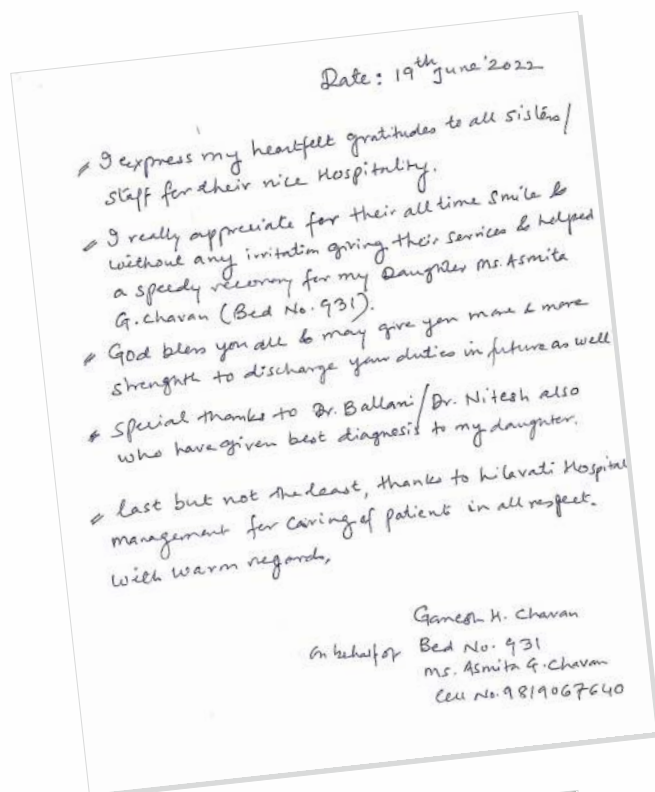 Date: 19th June'2022
I express my heartfelt gratitudes to all sisters/
staff for their nice Hospitality.
I really appreciate for their all time smile &
without any irritation giving their services & helped
a speedy recovery for my Daughter Ms. Asmita
G. Chavan (Bed No. 931).
God bless you all & may give you more & more
strenght to discharge your duties in future as well
Special thanks to Dr. Ballani/Dr. Nitesh also
who have given best diagnosis to my daughter.
last but not the least, thanks to Lilavati Hospital
management for cairing of patient in all respect.
with warm regards,
Ganesh H. Chavan
on behalf of Bed No. 931
Ms. Asmita G. Chavan
Cell No. 9819067640